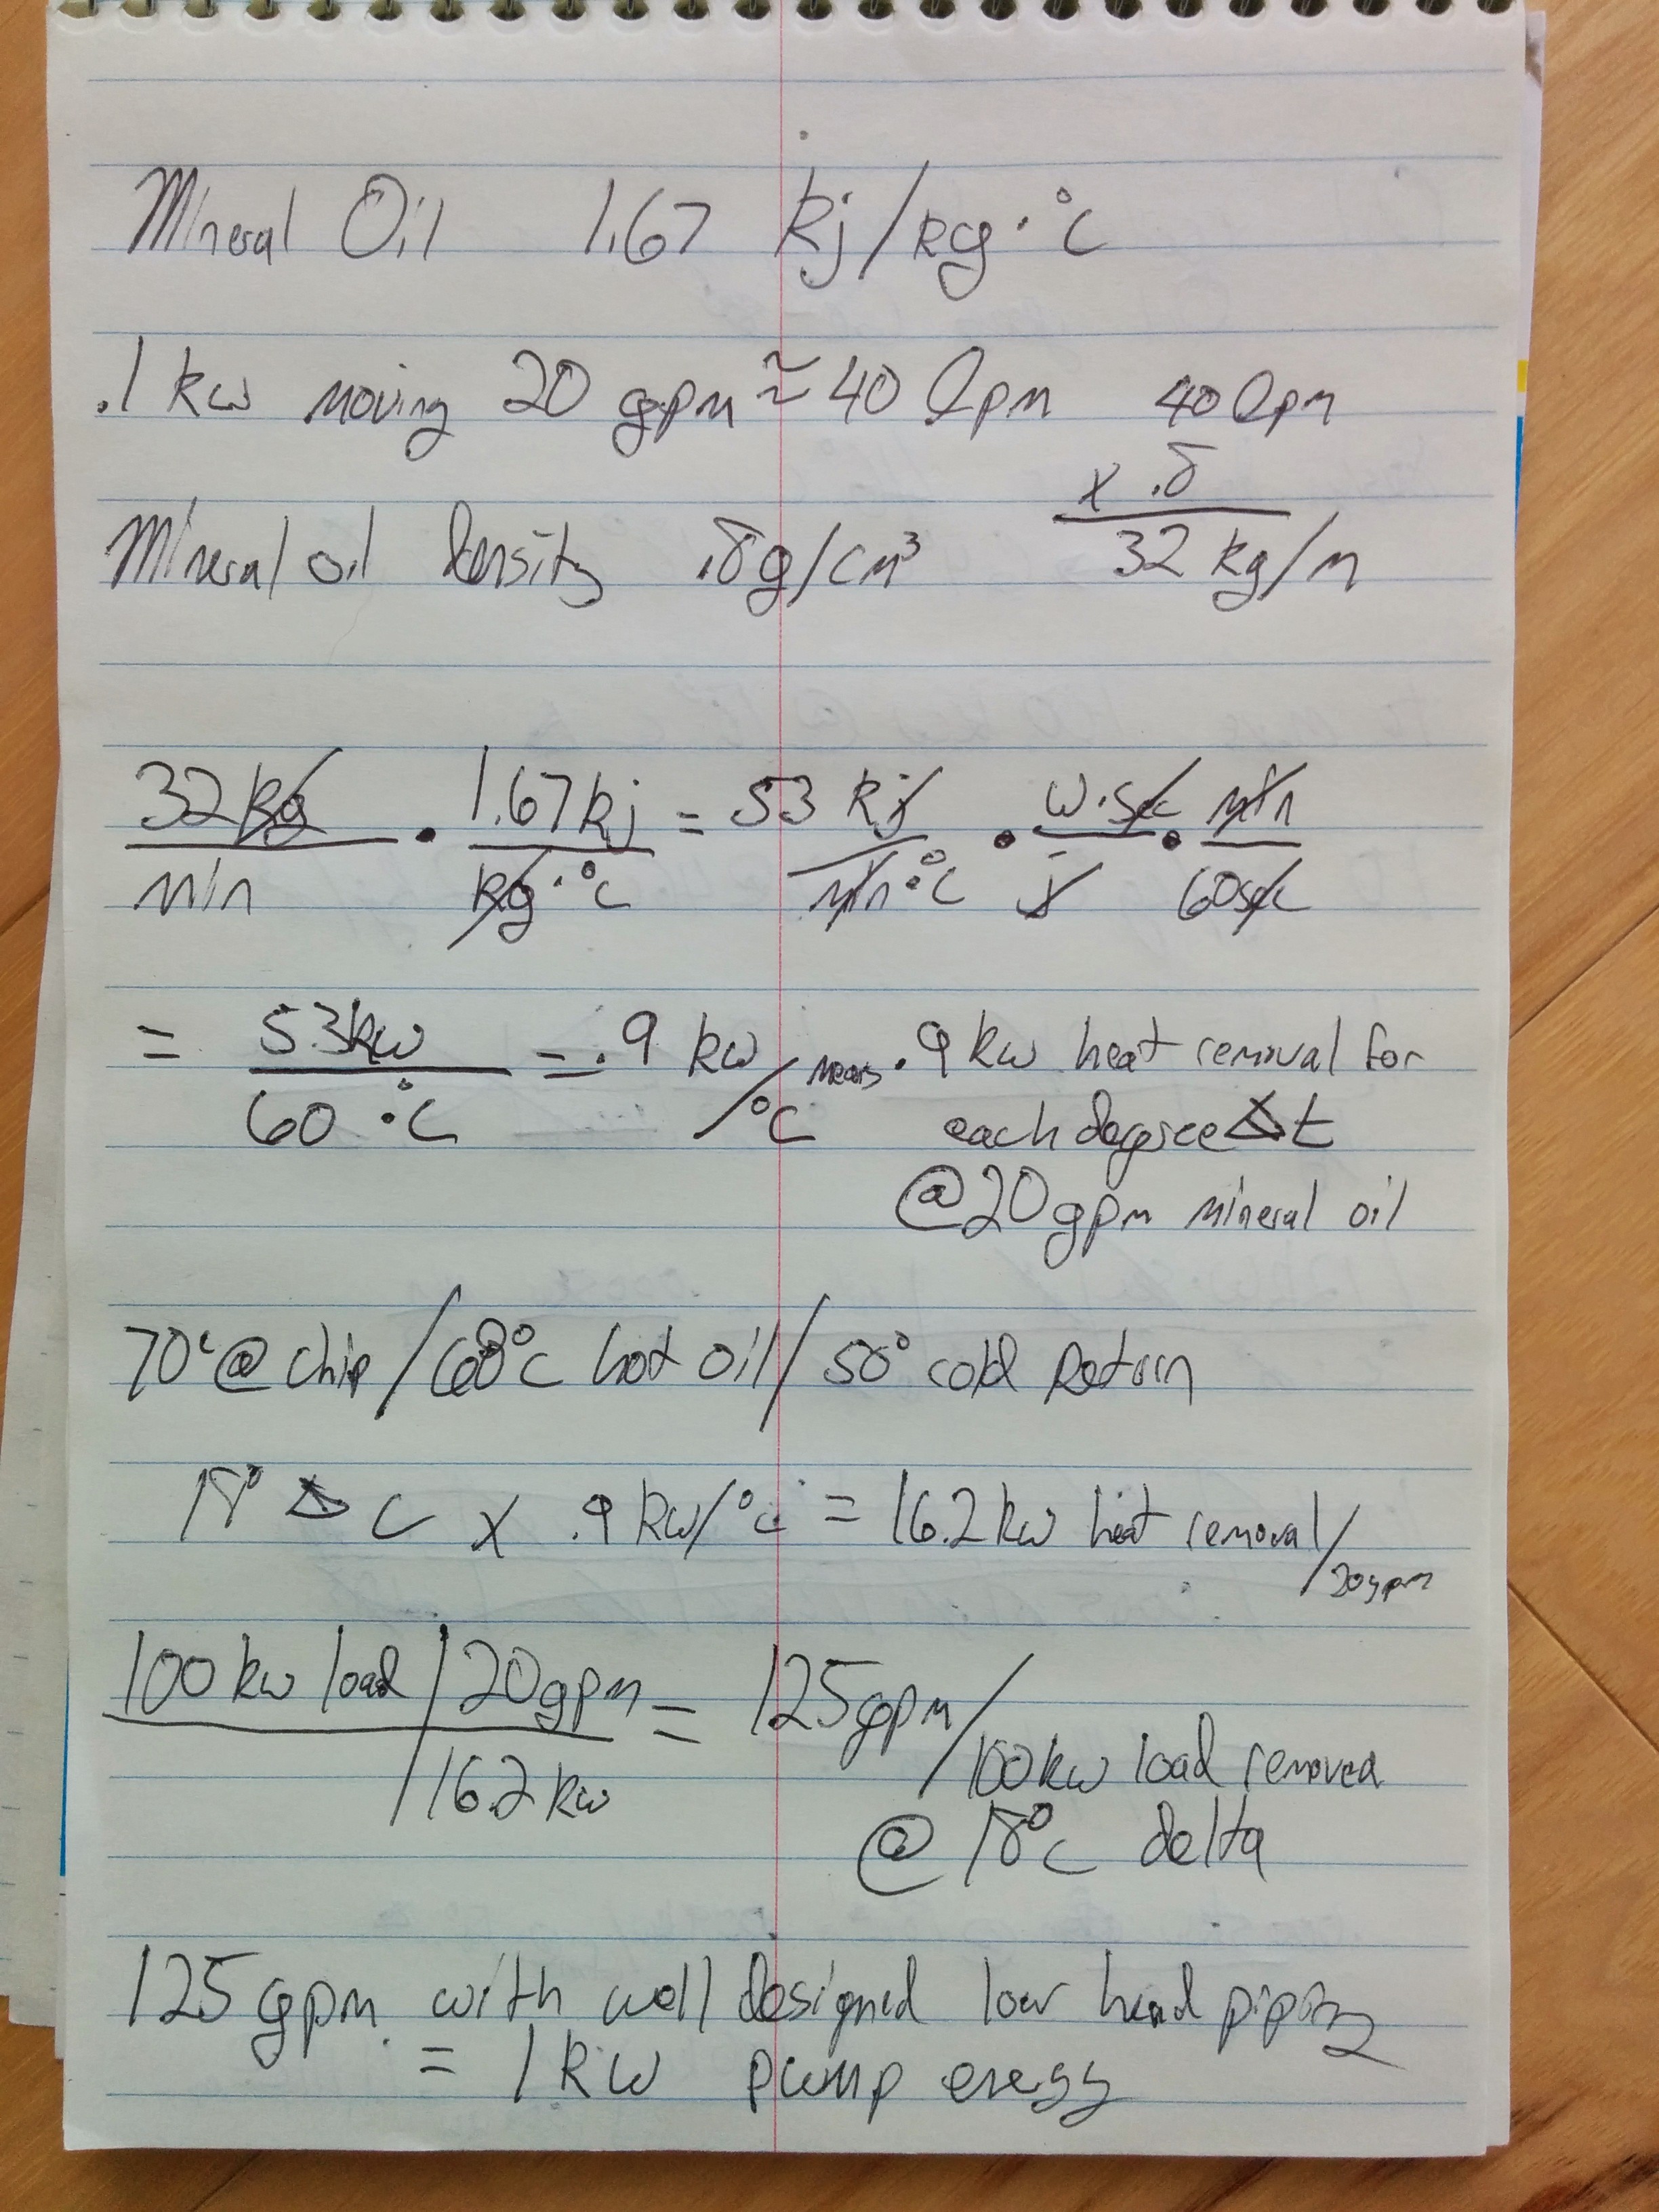 Mineral Oil 1.67 kj/kg·°c
.1 kw moving 20 gpm ≈ 40 lpm 40 lpm
x .8
Mineral oil density .8g/cm³ 32 kg/m
32 kg/min · 1.67 kj/kg·°c = 53 kj/min·°c · w·sec/j · min/60sec
= 53kw/60·°c = .9 kw/°c means .9 kw heat removal for
each degree Δt
@20gpm mineral oil
70°@chip/68°c hot oil/50° cold return
18° Δ c x .9 kw/°c = 16.2 kw heat removal/20gpm
100 kw load | 20gpm / 16.2 kw = 125gpm/100kw load removed
@ 18°c delta
125 gpm with well designed low head piping
= 1 kw pump energy